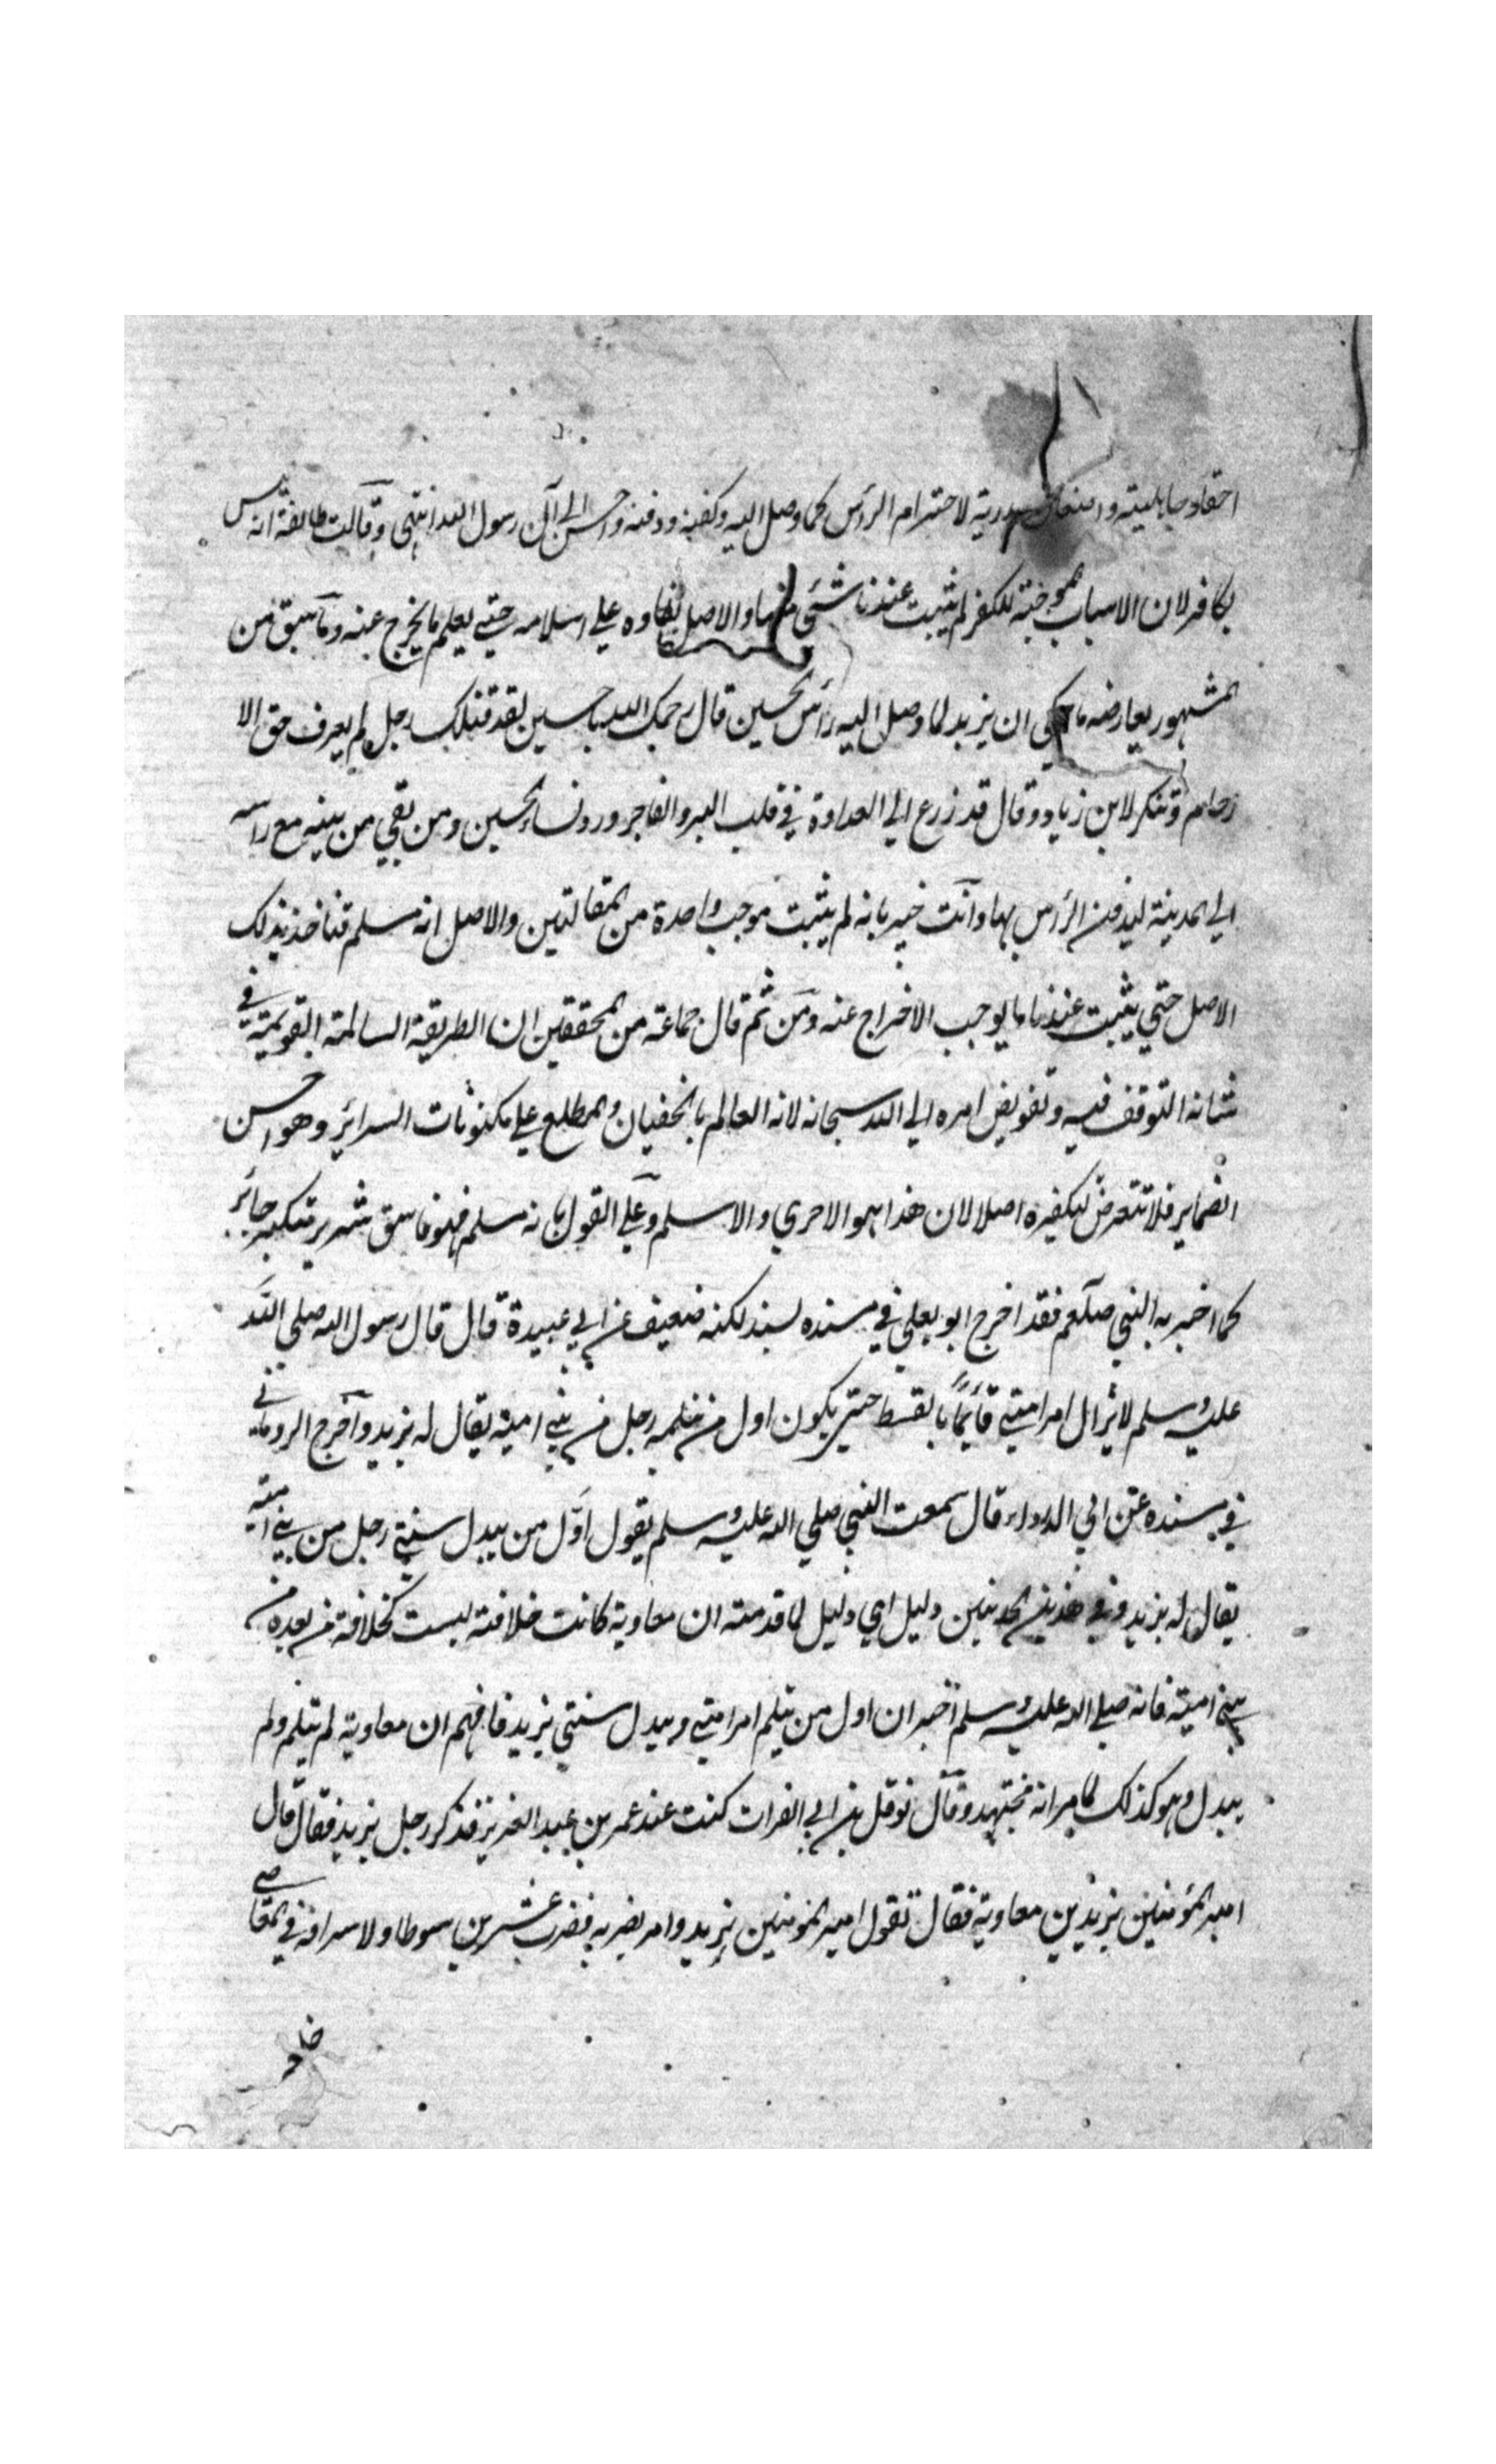 احقاد جاهلية واضغان بدرية لاحترام الرأس لما وصل اليه وكفنه ودفنه واحسن الي آل رسول الله انتهى وقالت طائفة انه ليس
بكافر لان الاسباب الموجبة للكفر لم يثبت عندنا شئي منها والاصل بقاوه علي اسلامه حتي يعلم ما يخرج عنه وما سبق من
المشهور يعارضه ما حكي ان يزيد لما وصل اليه رأس الحسين قال رحمك الله يا حسين لقد قتلك رجل لم يعرف حق الا
رحام وتنكر لابن زياد وقال قد زرع الي العداوة في قلب البر والفاجر ورد نساء الحسين ومن بقي من بنيه مع راسه
الي المدينة ليدفن الرأس بها وانت خبير بانه لم يثبت موجب واحدة من المقالتين والاصل انه مسلم فناخذ بذلك
الاصل حتي يثبت عندنا ما يوجب الاخراج عنه ومن ثم قال جماعة من المحققين ان الطريقة السالمة القويمة في
شانه التوقف فيه وتفويض امره الي الله سبحانه لانه العالم بالخفيات والمطلع علي مكنونات السرائر وهواجس
الضماير فلا نتعرض لتكفيره اصلا لان هذا هو الاحري والاسلم وعلي القول بانه مسلم فهو فاسق شرير متكبر جائر
كما اخبر به النبي صلعم فقد اخرج ابو يعلي في مسنده بسند لكنه ضعيف عن ابي عبيدة قال قال رسول الله صلى الله
عليه وسلم لا يزال امر امتي قائمًا بالقسط حتى يكون اول من يثلمه رجل من بني امية يقال له يزيد واخرج الروياني
في مسنده عن ابي الدرداء قال سمعت النبي صلي الله عليه وسلم يقول اوّل من يبدل سنتي رجل من بني امية
يقال له يزيد وفي هذين الحديثين دليل اي دليل لما قدمته ان معاوية كانت خلافته ليست كخلافة من بعده من
بني امية فانه صلي الله عليه وسلم اخبر ان اول من يثلم امر امتي ويبدل سنتي يزيد فافهم ان معاوية لم يثلم ولم
يبدل وهو كذلك لما مر انه مجتهد وقال نوفل بن ابي الفرات كنت عند عمر بن عبد العزيز فذكر رجل يزيد فقال قال
امير المؤمنين يزيد بن معاوية فقال تقول امير المؤمنين يزيد وامر بضربه فضرب عشرين سوطا ولاسرافه في المعاصي